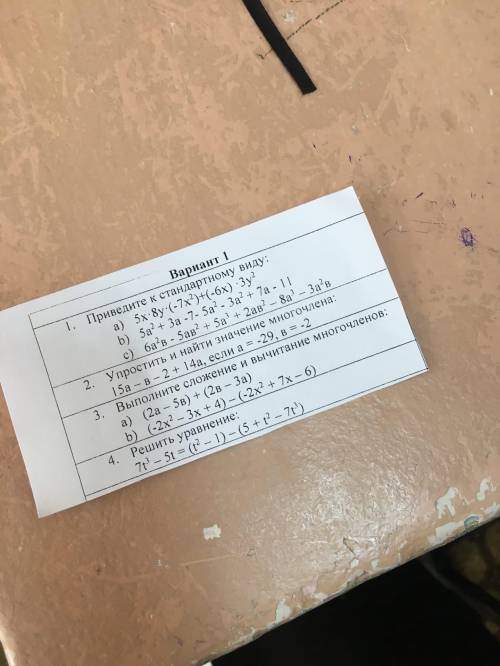 Вариант 1
1. Приведите к стандартному виду:
a) 5x·8y·(-7x²)+(-6x)·3y²
b) 5a² + 3a -7- 5a² - 3a² + 7a - 11
c) 6a²в - 5aв² + 5a³ + 2aв² – 8a³ – 3a²в
2. Упростить и найти значение многочлена:
15a – в – 2 + 14a, если a = -29, в = -2
3. Выполните сложение и вычитание многочленов:
a) (2a – 5в) + (2в – 3a)
b) (-2x² – 3x + 4) – (-2x² + 7x – 6)
4. Решить уравнение:
7t³ – 5t = (t² – 1) – (5 + t² – 7t³)